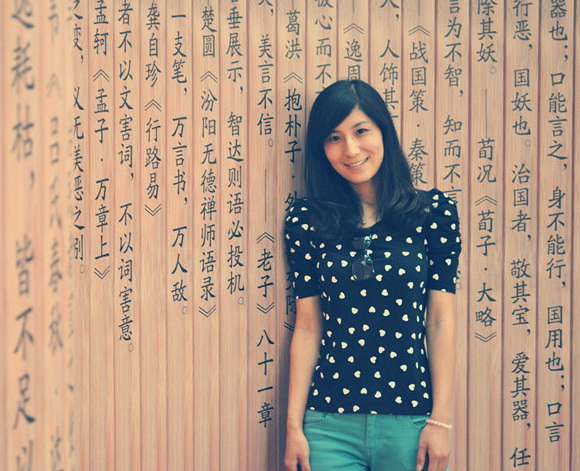 器也；口能言之，身不能行，国用也；口言
行恶，国妖也。治国者，敬其宝，爱其器，任
除其妖。 荀况《荀子·大略》
言为不智，知而不言
《战国策·秦策
人，人饰其
《逸周
心而不
葛洪《抱朴子·外
美言不信。 《老子》八十一章
垂展示，智达则语必投机。
楚圆《汾阳无德禅师语录》
一支笔，万言书，万人敌。
龚自珍《行路易》
者不以文害词，不以词害意。
孟轲《孟子·万章上》
之变，义无美恶之
《吕氏春秋·达
耗枯，皆不足以